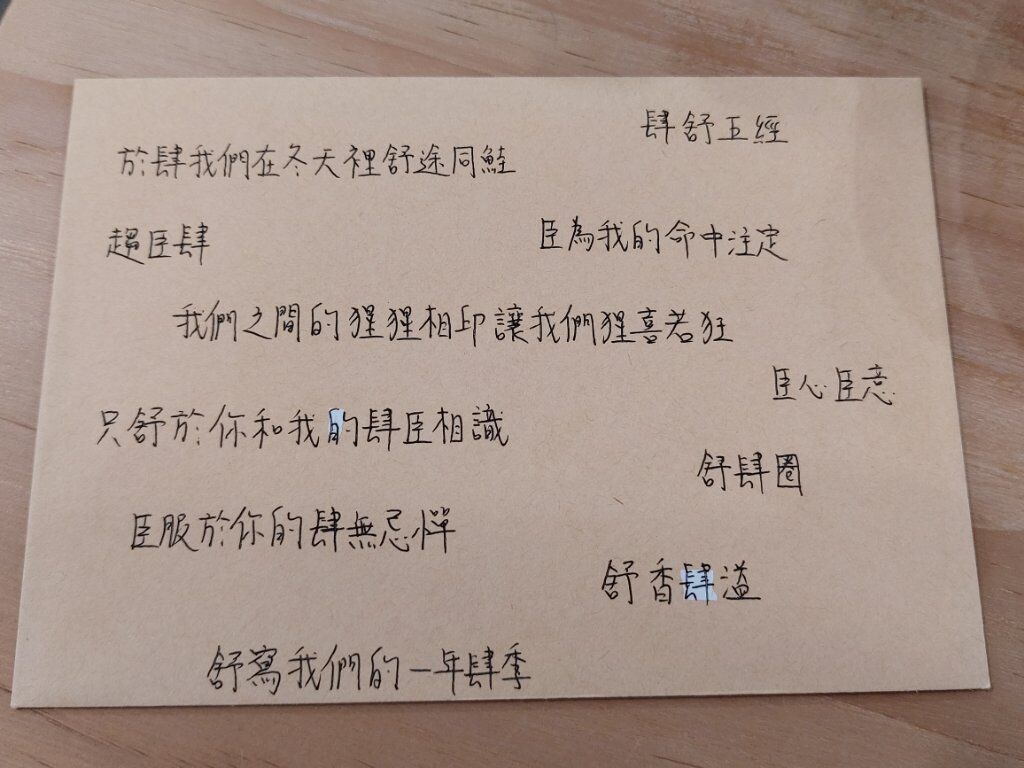 肆舒五經
於肆我們在冬天裡舒途同鮭
趨臣肆
臣為我的命中注定
我們之間的猩猩相印讓我們猩喜若狂
臣心臣意
只舒於你和我的肆臣相識
舒肆圈
臣服於你的肆無忌憚
舒香肆溢
舒寫我們的一年肆季